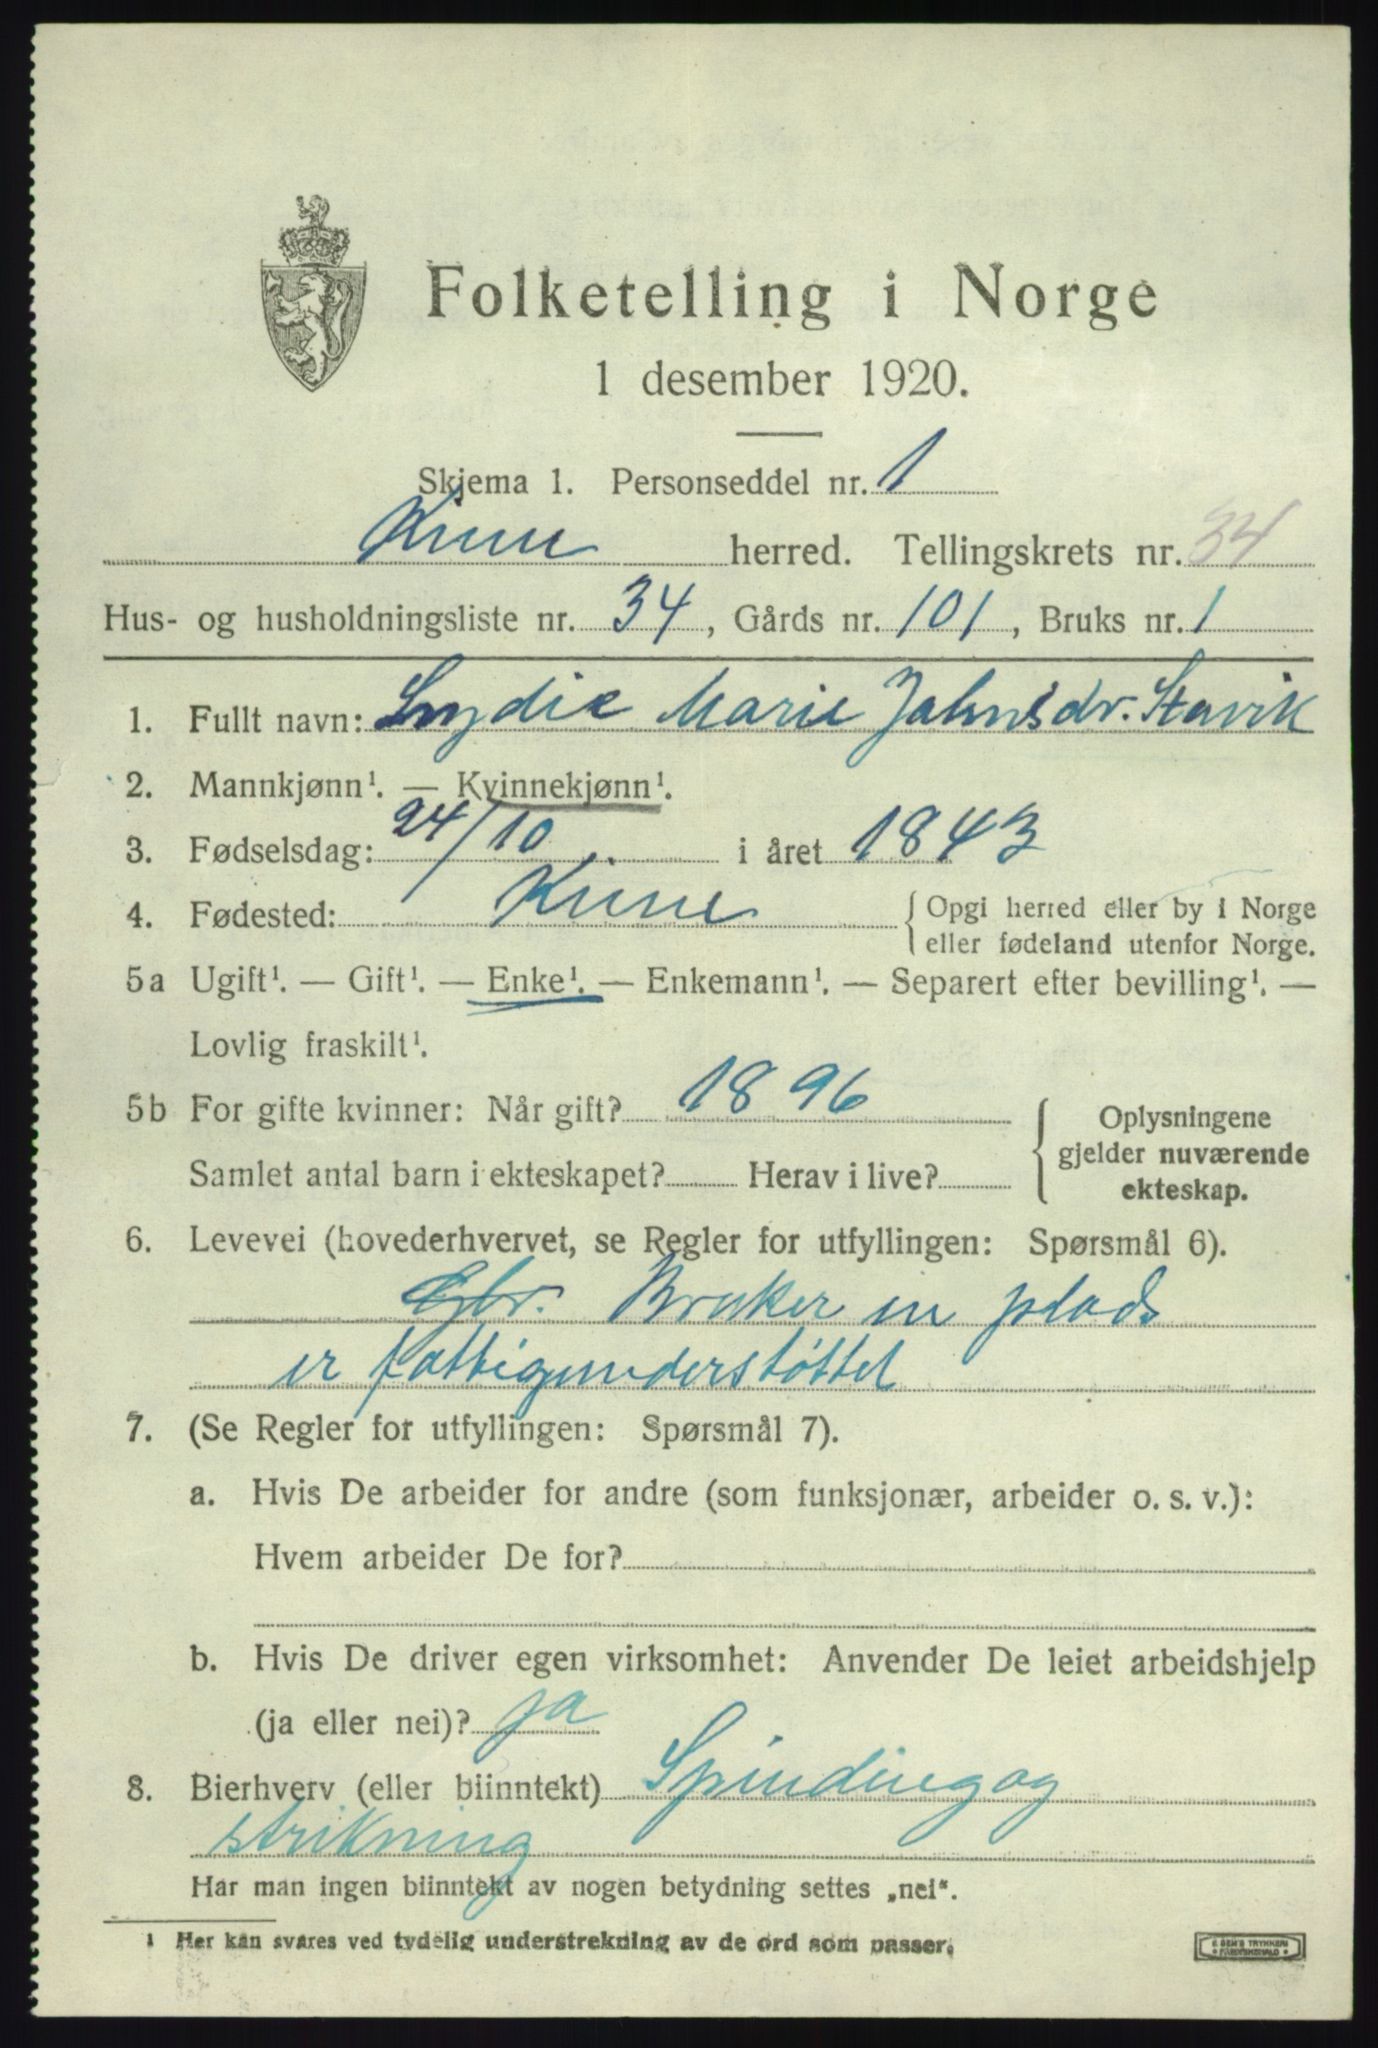 Folketelling i Norge
1 desember 1920.
Skjema 1. Personseddel nr. 1
Kinn herred. Tellingskrets nr. 34
Hus- og husholdningsliste nr. 34, Gårds nr. 101, Bruks nr. 1
1. Fullt navn: Lydie Marie Johnsdr. Stavik
2. Mannkjønn¹. — Kvinnekjønn¹.
3. Fødselsdag: 24/10 i året 1843
4. Fødested: Kinn { Opgi herred eller by i Norge
eller fødeland utenfor Norge.
5a Ugift¹. — Gift¹. — Enke¹. — Enkemann¹. — Separert efter bevilling¹. —
Lovlig fraskilt¹.
5b For gifte kvinner: Når gift? 1896 { Oplysningene
gjelder nuværende
Samlet antal barn i ekteskapet? Herav i live?
ekteskap.
6. Levevei (hovederhvervet, se Regler for utfyllingen: Spørsmål 6).
Gbr. Bruker en plads
er fattigunderstøttet
7. (Se Regler for utfyllingen: Spørsmål 7).
a. Hvis De arbeider for andre (som funksjonær, arbeider o. s. v.):
Hvem arbeider De for?
b. Hvis De driver egen virksomhet: Anvender De leiet arbeidshjelp
(ja eller nei)? ja
8. Bierhverv (eller biinntekt) Spinding og
strikning
Har man ingen biinntekt av nogen betydning settes „nei“.
¹ Her kan svares ved tydelig understrekning av de ord som passer.